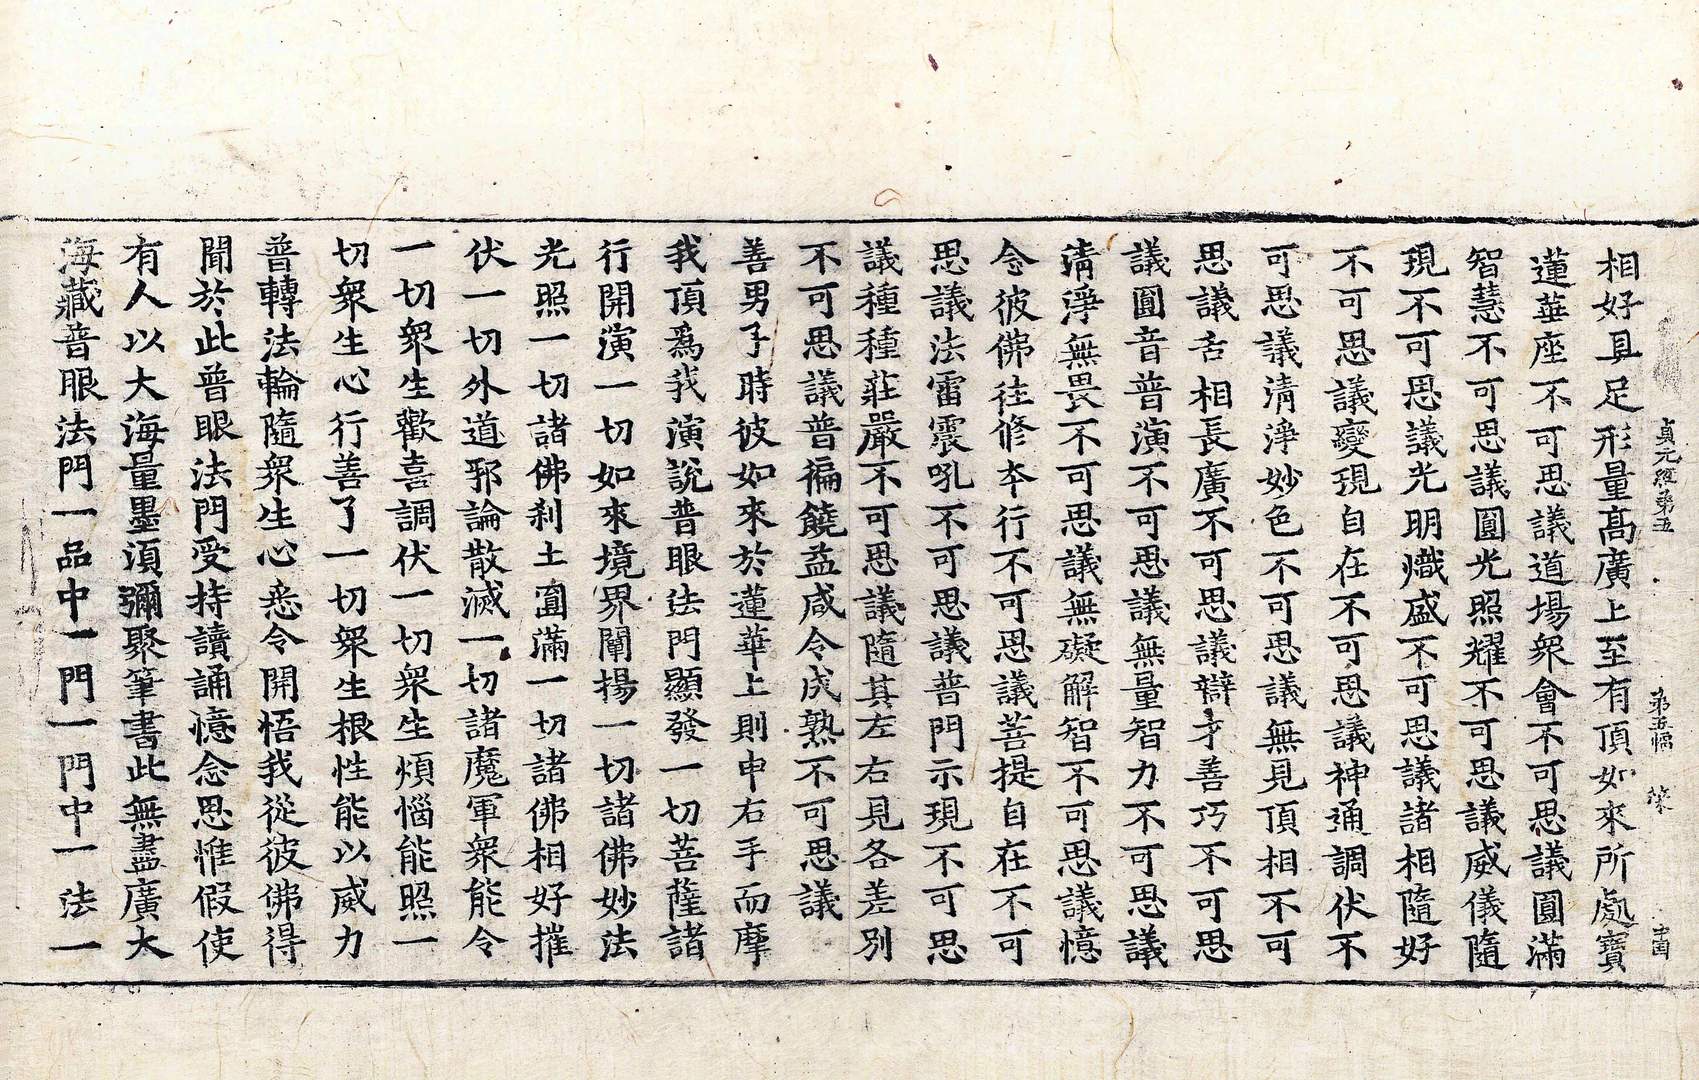 貞元經第五 第五幅 
相好具足形量高廣上至有頂如來所處寶
蓮華座不可思議道場衆會不可思議圓滿
智慧不可思議圓光照耀不可思議威儀隨
現不可思議光明熾盛不可思議諸相隨好
不可思議變現自在不可思議神通調伏不
可思議清淨妙色不可思議無見頂相不可
思議舌相長廣不可思議辯才善巧不可思
議圓音普演不可思議無量智力不可思議
清淨無畏不可思議無礙解智不可思議憶
念彼佛往修本行不可思議菩提自在不可
思議法雷震吼不可思議普門示現不可思
議種種莊嚴不可思議隨其左右見各差別
不可思議普徧饒益咸令成熟不可思議
善男子時彼如來於蓮華上則申右手而摩
我頂爲我演說普眼法門顯發一切菩薩諸
行開演一切如來境界闡揚一切諸佛妙法
光照一切諸佛刹土圓滿一切諸佛相好摧
伏一切外道邪論散滅一切諸魔軍衆能令
一切衆生歡喜調伏一切衆生煩惱能照一
切衆生心行善了一切衆生根性能以威力
普轉法輪隨衆生心悉令開悟我從彼佛得
聞於此普眼法門受持讀誦憶念思惟假使
有人以大海量墨須彌聚筆書此無盡廣大
海藏普眼法門一品中一門一門中一法一